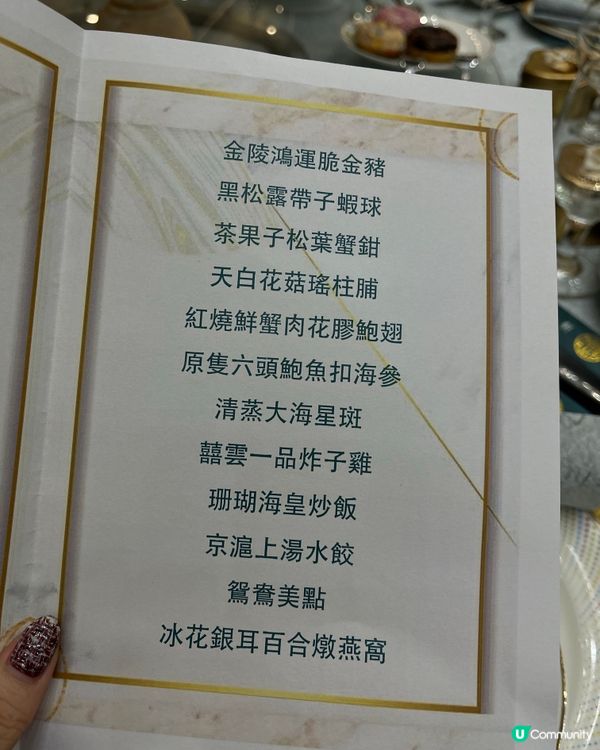 金陵鴻運脆金豬
黑松露帶子蝦球
茶果子松葉蟹鉗
天白花菇瑤柱脯
紅燒鮮蟹肉花膠鮑翅
原隻六頭鮑魚扣海參
清蒸大海星斑
囍雲一品炸子雞
珊瑚海皇炒飯
京滬上湯水餃
鴛鴦美點
冰花銀耳百合燉燕窩
U Community